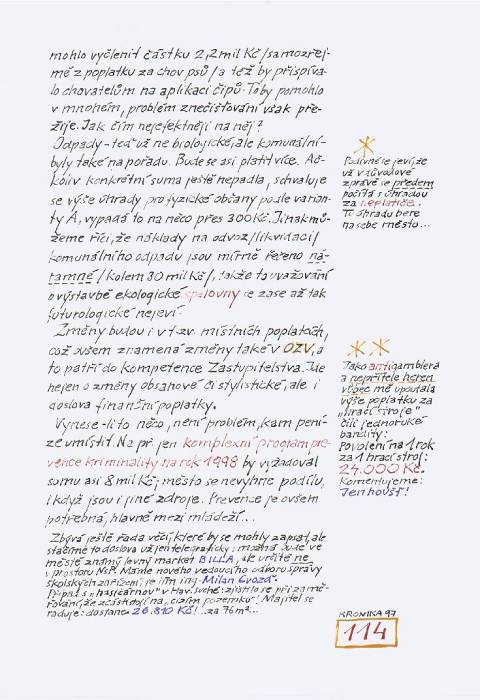 mohlo vyčlenit částku 2,2 mil Kč /samozřej-
mě z poplatku za chov psů/ a též by přispíva-
lo chovatelům na aplikaci čipů. To by pomohlo
v mnohém, problém znečišťování však pře-
žije. Jak čím nejefektněji na něj?
Odpady - teď už ne biologické, ale komunální -
byly také na pořadu. Bude se asi platit více. Ač-
koliv konkrétní suma ještě nepadla, schvaluje
se výše úhrady pro fyzické občany podle varian-
ty A, vypadá to na něco přes 300 Kč. Jinak mů-
žeme říci, že náklady na odvoz /likvidaci/
komunálního odpadu jsou mírně řečeno ná-
ramné /kolem 30 mil Kč/, takže ta uvažování
o výstavbě ekologické spalovny se zase až tak
futurologické nejeví.
Změny budou i v t.zv. místních poplatcích,
což ovšem znamená změny také v OZV, a
to patří do kompetence Zastupitelstva. Jde
nejen o změny obsahové či stylistické, ale i
doslova finanční poplatky.
Vynese-li to něco, není problém, kam pení-
ze umístit. Na př. jen komplexní program pre-
vence kriminality na rok 1998 by vyžadoval
sumu asi 8 mil Kč; město se nevyhne podílu,
i když jsou i jiné zdroje. Prevence je ovšem
potřebná, hlavně mezi mládeží...
Zbývá ještě řada věcí, které by se mohly zapsat, ale
stačí mě to doslova už jen telegraficky: možná bude ve
městě známý levný market BILLA, ale určitě ne
v prostoru NsP. Máme nového vedoucího odboru správy
školských zařízení: je jím ing. Milan Gvozd.
Případ s "hasičárnou" v Hav. Suché: zjistilo se při zamě-
řování, že zčásti stojí na "cizím pozemku"! Majitel se
raduje: dostane 26.810 Kč! ..za 76 m²...
Podivné se jeví, že
už v důvodové
zprávě se předem
počítá s úhradou
za neplatiče.
Tu úhradu bere
na sebe město...
Jako antigamblera
a nepřítele heren
vůbec mě upoutala
výše poplatku za
"hrací stroje"
čili jednoruké
bandity:
Povolení na 1 rok
za 1 hrací stroj:
24.000 Kč.
Komentujeme:
Jen houšť!
KRONIKA 97
114